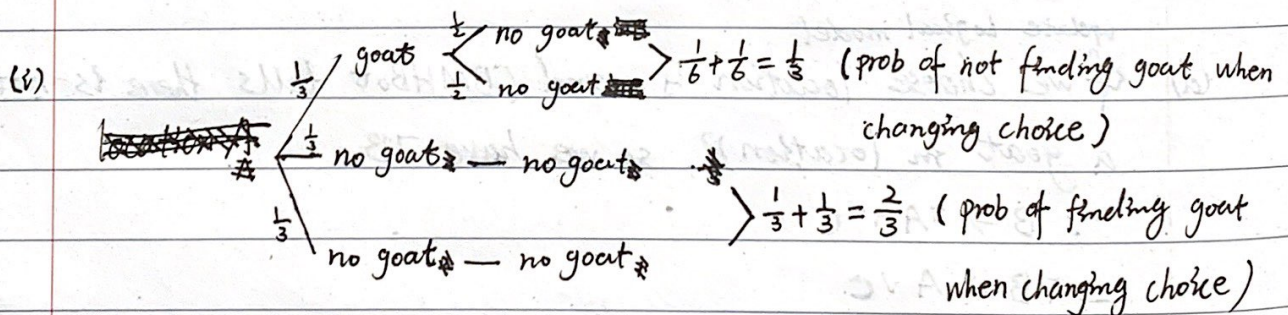 (i)
1/3 goat 1/2 no goat
1/2 no goat
1/6 + 1/6 = 1/3 (prob of not finding goat when
changing choice)
1/3 no goat — no goat
1/3 no goat — no goat
1/3 + 1/3 = 2/3 (prob of finding goat
when changing choice)